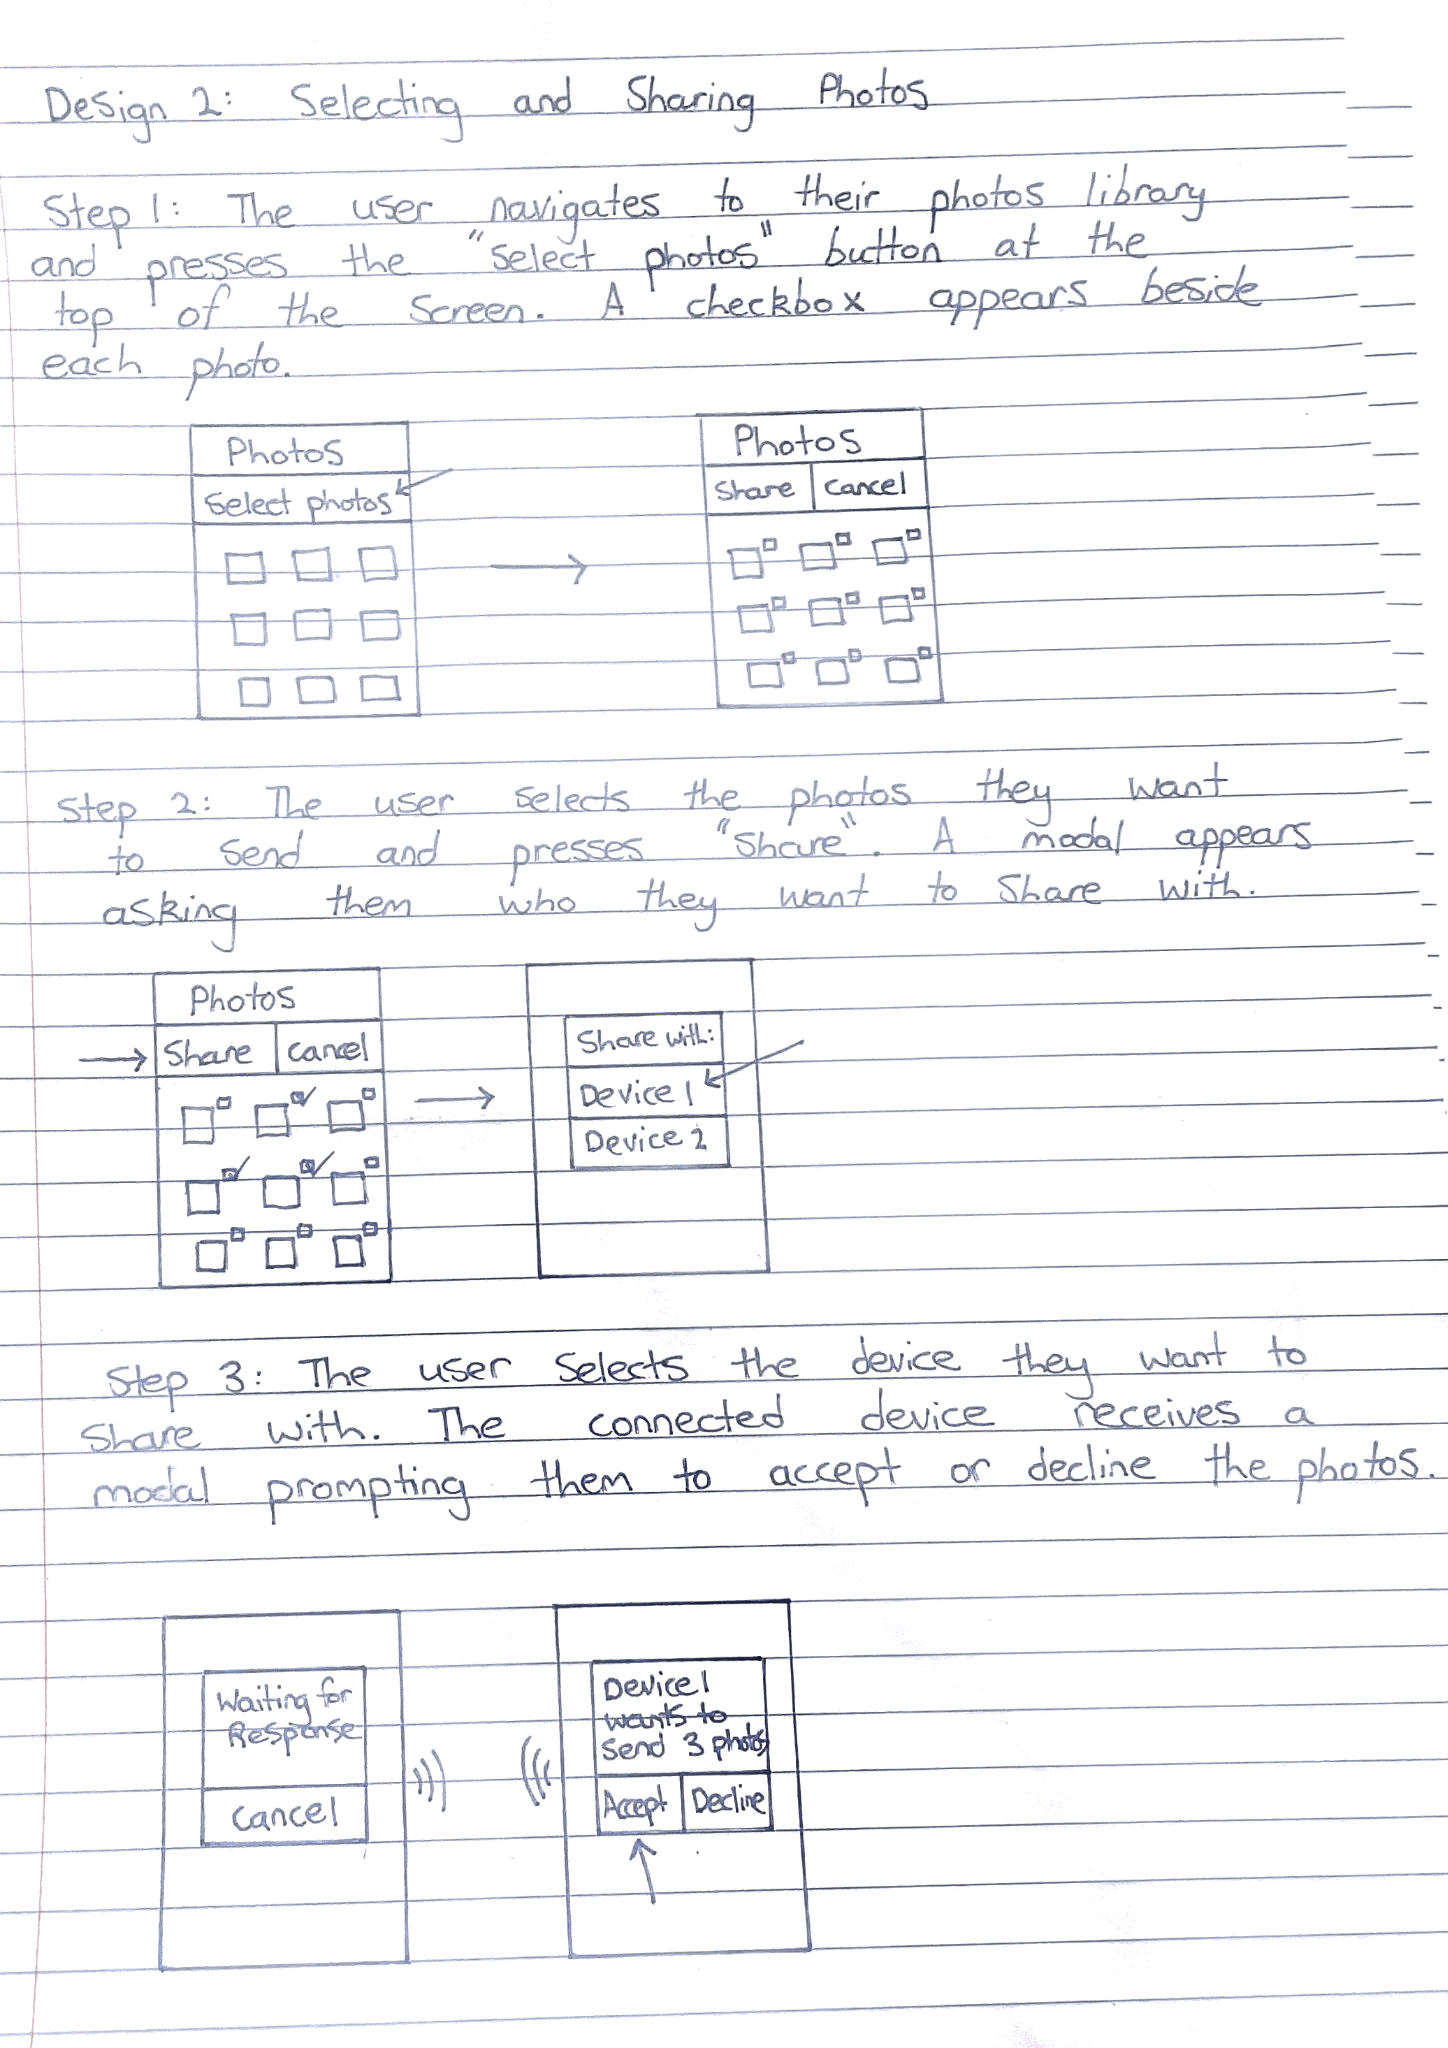 Design 2: Selecting and Sharing Photos
Step 1: The user navigates to their photos library
and presses the "select photos" button at the
top of the screen. A checkbox appears beside
each photo.
Photos
Select photos
Photos
Share Cancel
Step 2: The user selects the photos they want
to send and presses "Share". A modal appears
asking them who they want to share with.
Photos
Share Cancel
Share with:
Device 1
Device 2
Step 3: The user selects the device they want to
share with. The connected device receives a
modal prompting them to accept or decline the photos.
Waiting for
Response
Cancel
Device 1
wants to
send 3 photos
Accept Decline